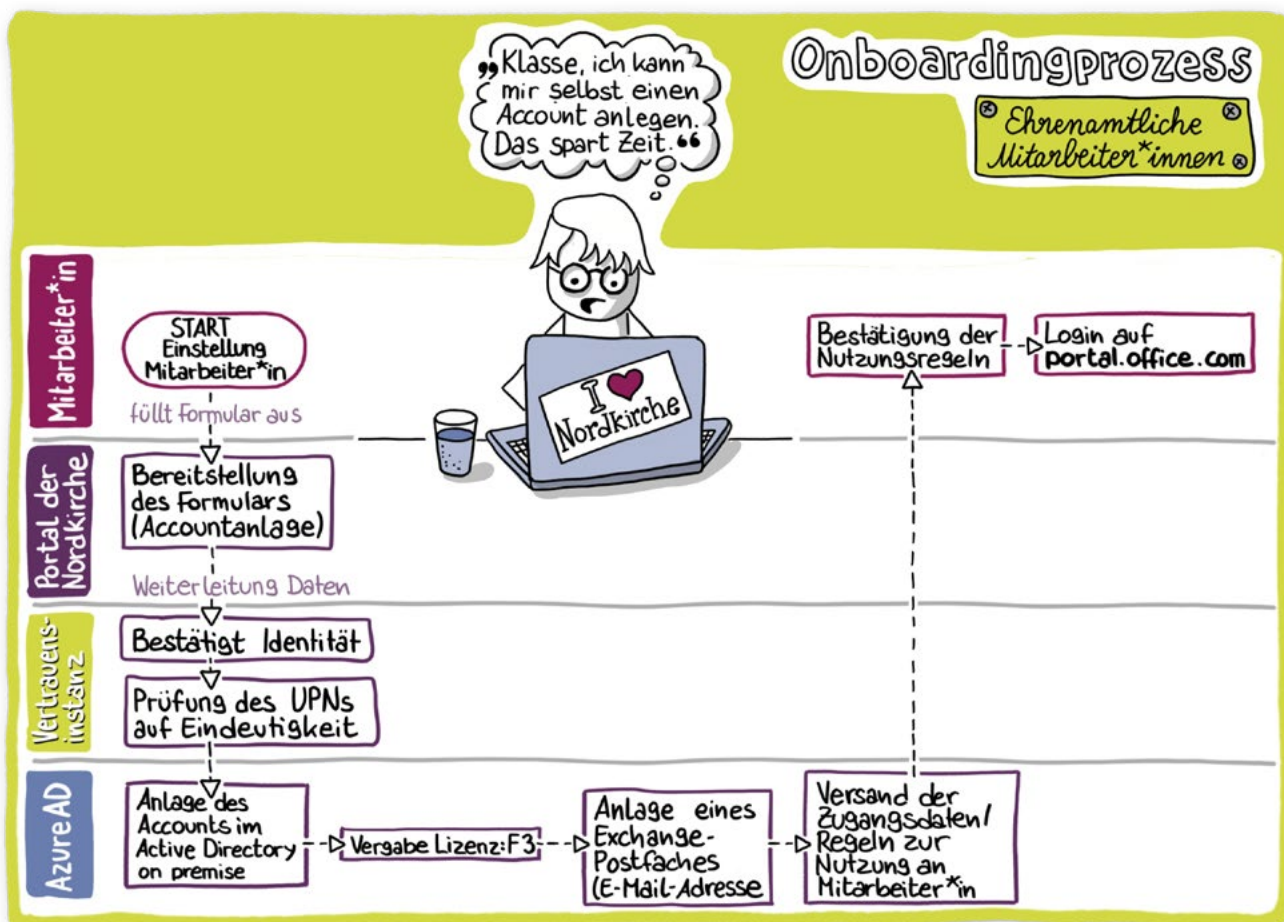 „Klasse, ich kann
mir selbst einen
Account anlegen.
Das spart Zeit.“
Onboardingprozess
Ehrenamtliche
Mitarbeiter*innen
Mitarbeiter*in
START
Einstellung
Mitarbeiter*in
füllt Formular aus
I ♥
Nordkirche
Bestätigung der
Nutzungsregeln
Login auf
portal.office.com
Portal der
Nordkirche
Bereitstellung
des Formulars
(Accountanlage)
Weiterleitung Daten
Vertrauens-
instanz
Bestätigt Identität
Prüfung des UPNs
auf Eindeutigkeit
Azure AD
Anlage des
Accounts im
Active Directory
on premise
Vergabe Lizenz: F3
Anlage eines
Exchange-
Postfaches
(E-Mail-Adresse
Versand der
Zugangsdaten/
Regeln zur
Nutzung an
Mitarbeiter*in